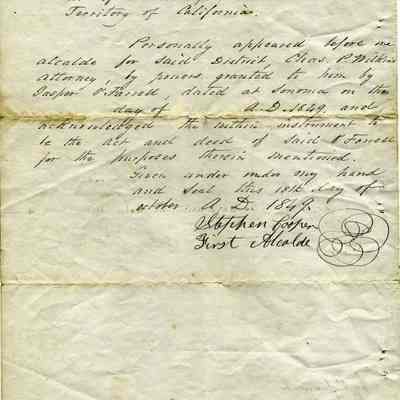 Territory of California.
Personally appeared before me
alcalde for Said District, Chas. P. Wilkins
Attorney, by powers granted to him by
Jasper O'Farrell, dated at Sonoma on the
day of A.D. 1849, and
acknowledged the within instrument to
be the act and deed of Said O'Farrell
for the purposes therein mentioned.
Given under my hand
and Seal this 18th day of
october A. D. 1849.
Stephen Cooper
First Alcalde